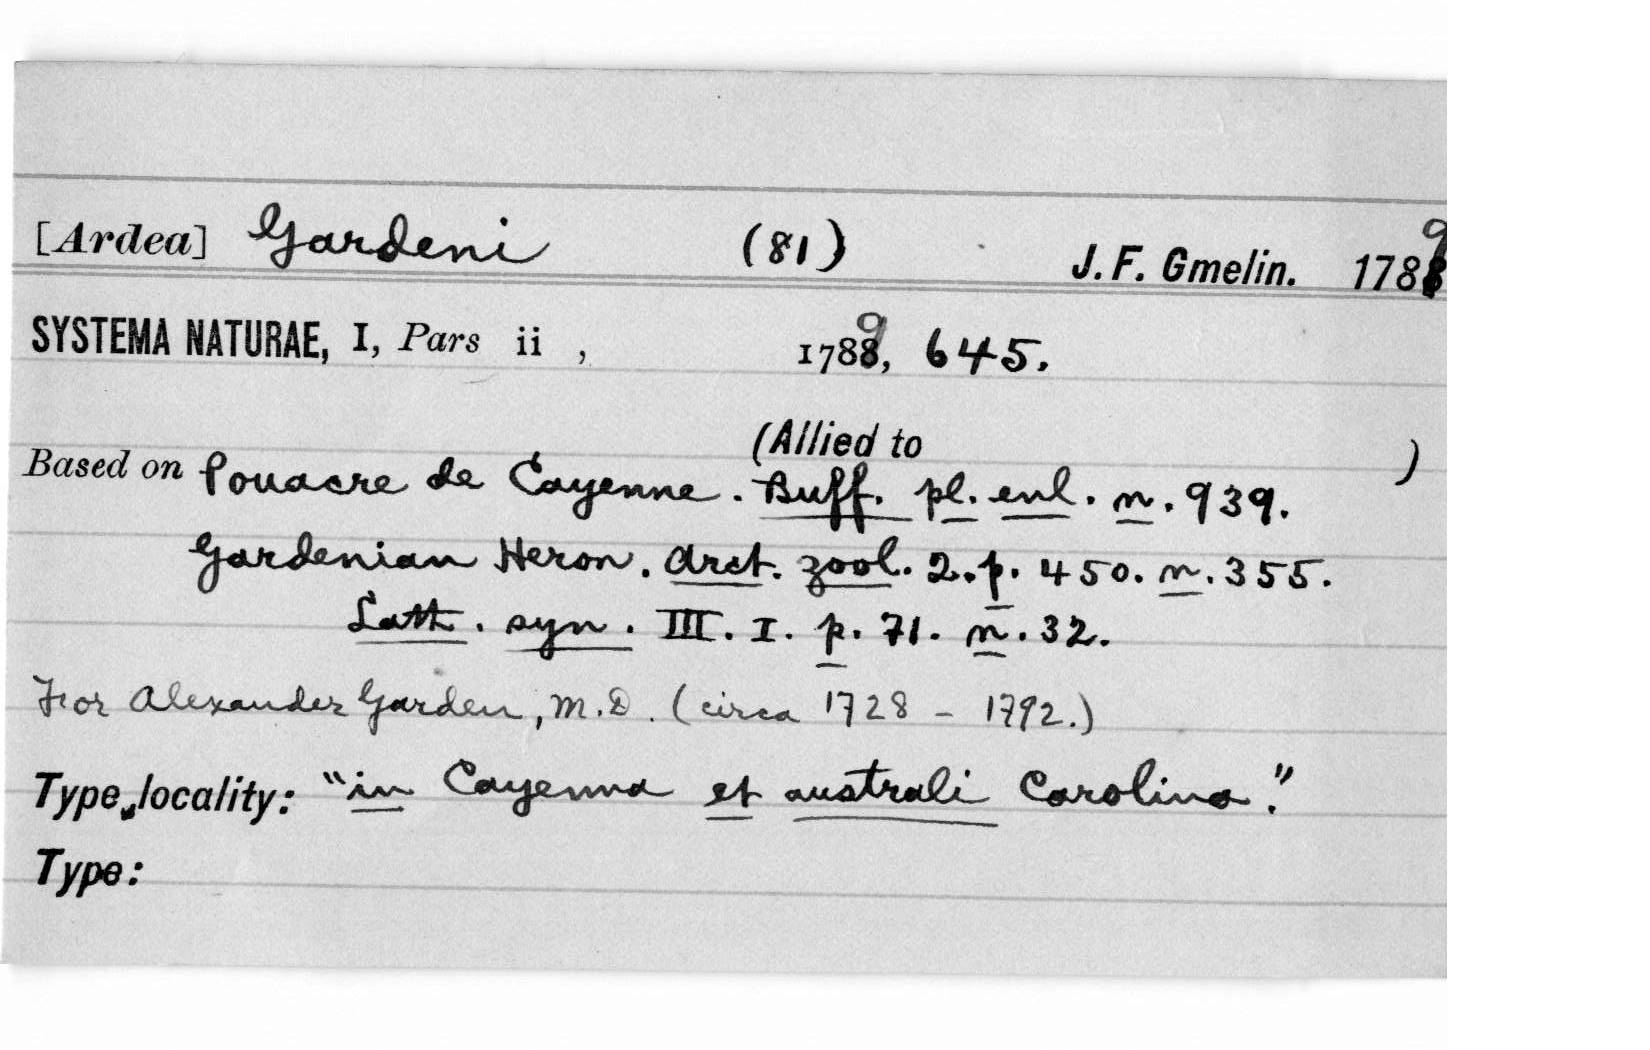 [Ardea] Gardeni (81) J. F. Gmelin. 1789
SYSTEMA NATURAE, I, Pars ii , 1789, 645.
(Allied to )
Based on Pouacre de Cayenne. Buff. pl. enl. n. 939.
Gardenian Heron. Arct. zool. 2. p. 450. n. 355.
Lath. syn. III. I. p. 71. n. 32.
For Alexander Garden, M.D. (circa 1728 - 1792.)
Type locality: "in Cayenna et australi Carolina."
Type: